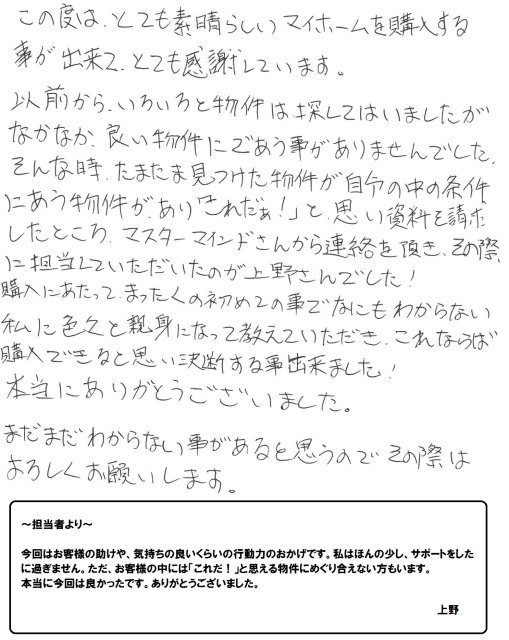 この度は、とても素晴らしいマイホームを購入する
事が出来て、とても感謝しています。
以前から、いろいろと物件は、探してはいましたが
なかなか、良い物件にであう事がありませんでした。
そんな時、たまたま見つけた物件が自分の中の条件
にあう物件が、あり「これだぁ!」と、思い資料を請求
したところ、マスターマインドさんから連絡を頂き、その際
に担当していただいたのが上野さんでした!
購入にあたって、まったくの初めての事でなにもわからない
私に色々と親身になって教えていただき、これならば
購入できると思い決断する事出来ました!
本当にありがとうございました。
まだまだわからない事があると思うのでその際は
よろしくお願いします。
~担当者より~
今回はお客様の助けや、気持ちの良いくらいの行動力のおかげです。私はほんの少し、サポートをした
に過ぎません。ただ、お客様の中には「これだ!」と思える物件にめぐり合えない方もいます。
本当に今回は良かったです。ありがとうございました。
上野